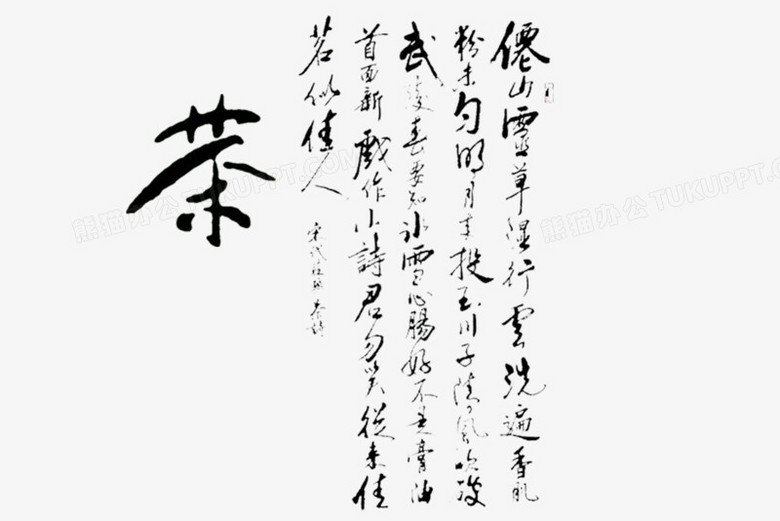 僊山靈草濕行雲洗遍香肌
粉未勻明月来投玉川子清風吹破
武陵春要知冰雪心腸好不是膏油
首面新戲作小詩君勿笑從来佳
茗似佳人
茶
熊猫办公 TUKUPPT.COM
熊猫办公 TUKUPPT.COM